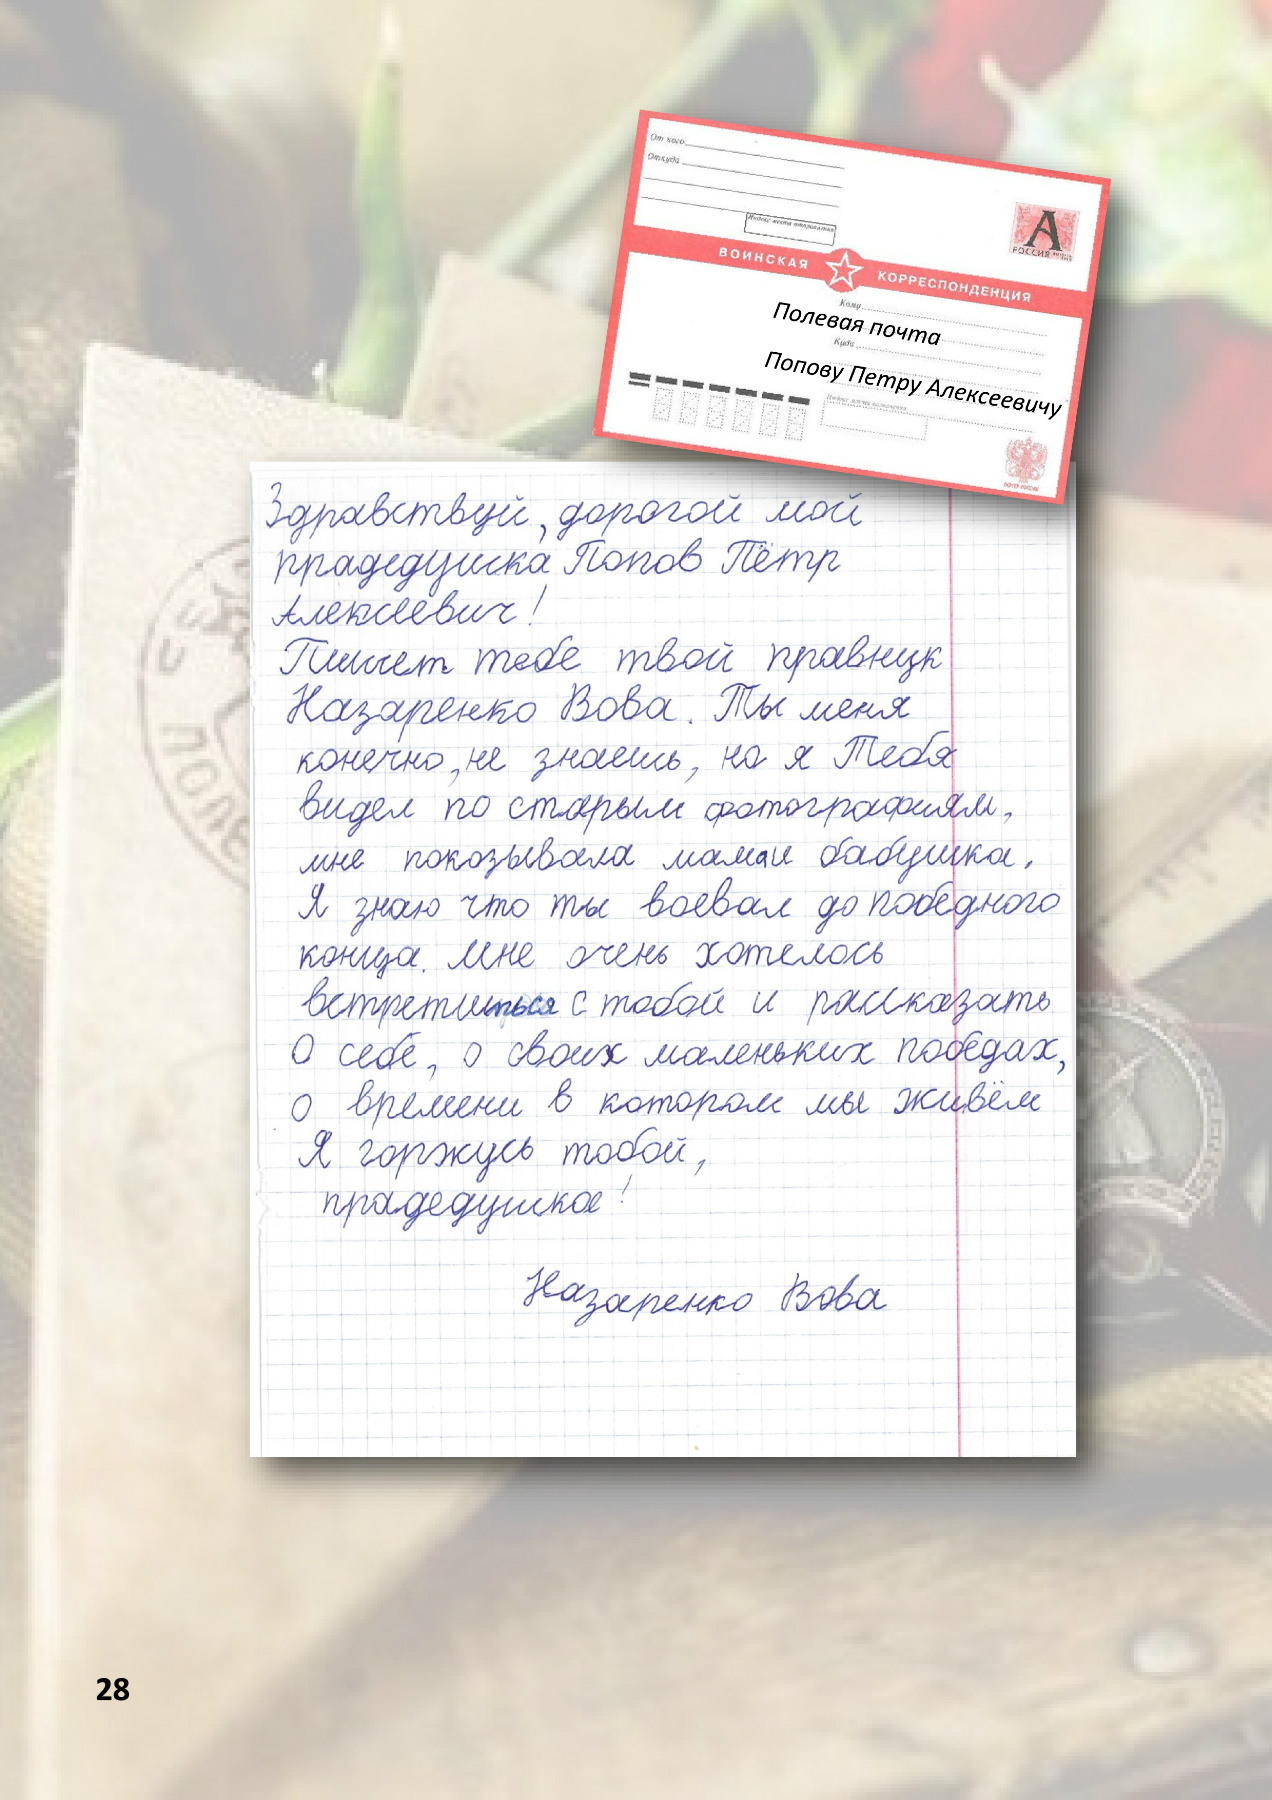 От кого
Откуда
Индекс места отправления
А
РОССИЯ
ВОИНСКАЯ КОРРЕСПОНДЕНЦИЯ
Кому
Полевая почта
Куда
Попову Петру Алексеевичу
Индекс места назначения
ПОЧТА РОССИИ
Здравствуй, дорогой мой
прадедушка Попов Пётр
Алексеевич!
Пишет тебе твой правнук
Назаренко Вова. Ты меня
конечно, не знаешь, но я Тебя
видел по старым фотографиям,
мне показывала мама и бабушка.
Я знаю что ты воевал до победного
конца. Мне очень хотелось
встретиться с тобой и рассказать
О себе, о своих маленьких победах,
о времени в котором мы живём
Я горжусь тобой,
прадедушка!
Назаренко Вова
28